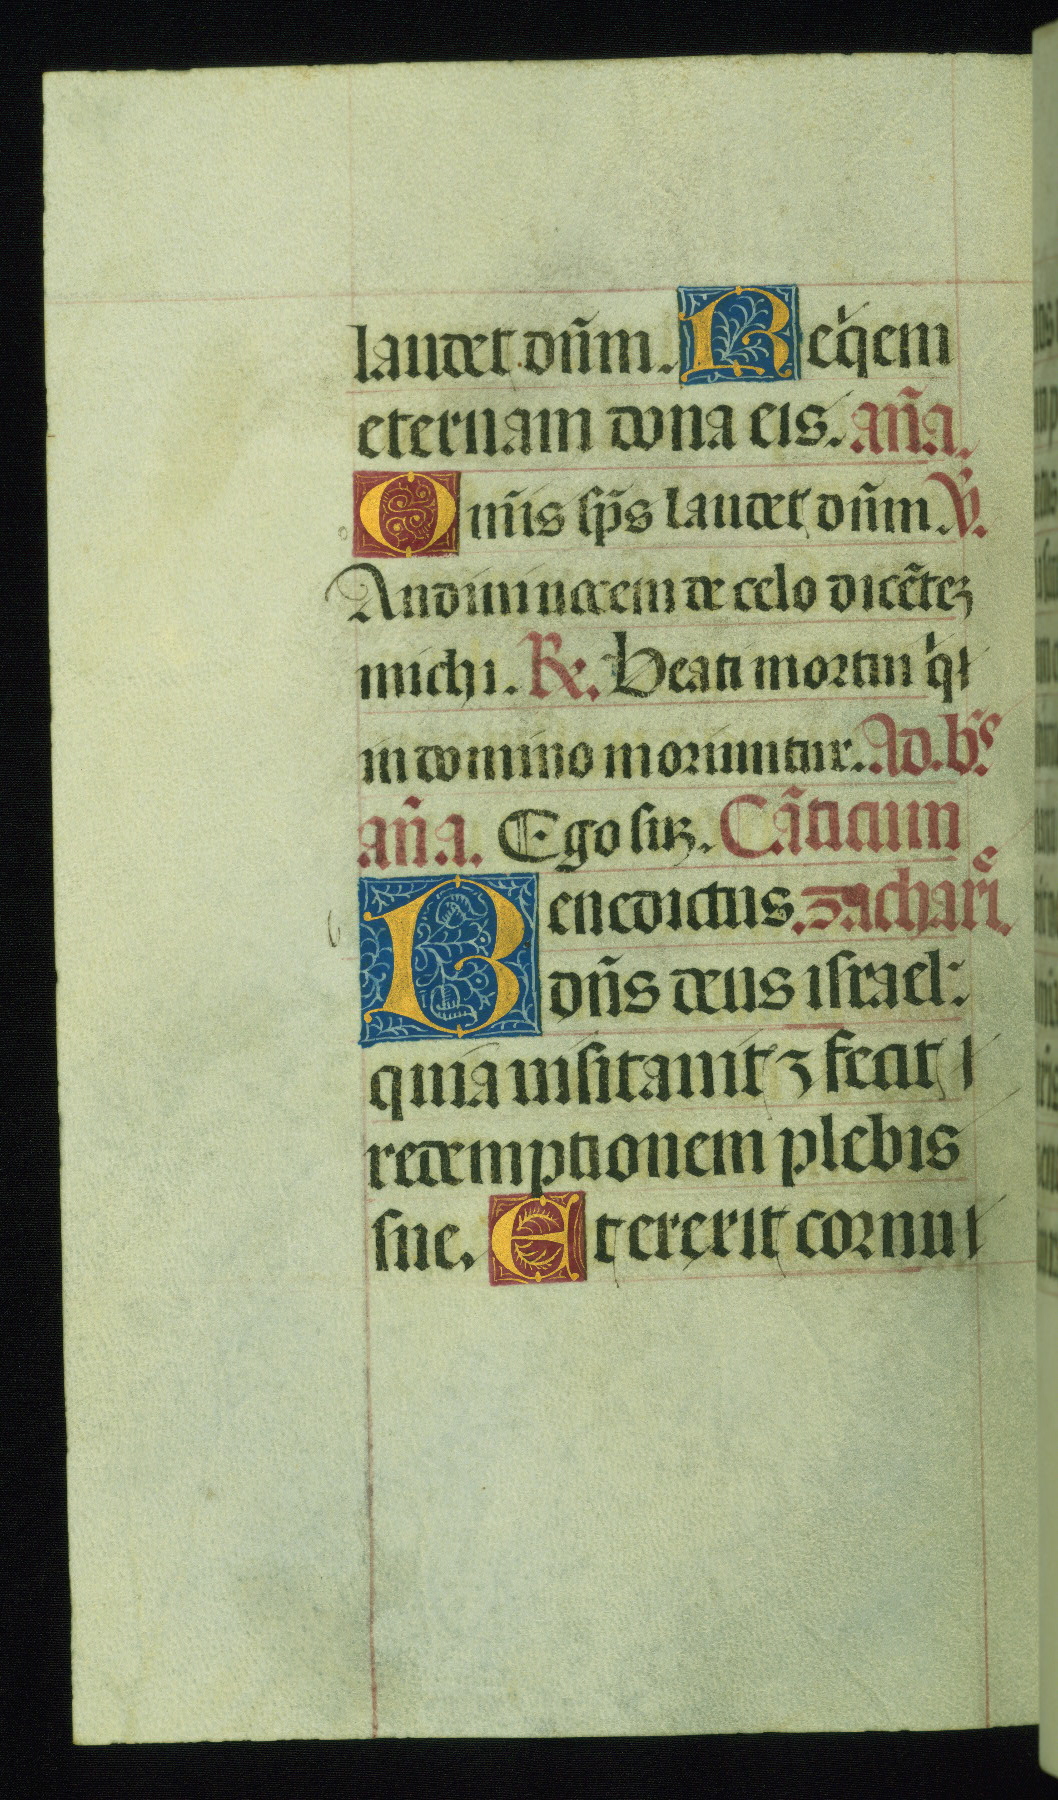 laudet dn̄m. Req̇em
eternam dona eis. an̄a.
Om̄is sp̄s laudet dn̄m. V̄.
Audiui uocem de celo dicētez
michi. R̄. Beati mortui q̇i
in domino moriuntur. Ad. b̄s
an̄a. Ego suꝫ. Cāticum
Benedictus. Zacharie.
dn̄s deus israel:
quia uisitauit ⁊ fecit
redemptionem plebis
sue. Et erexit cornu